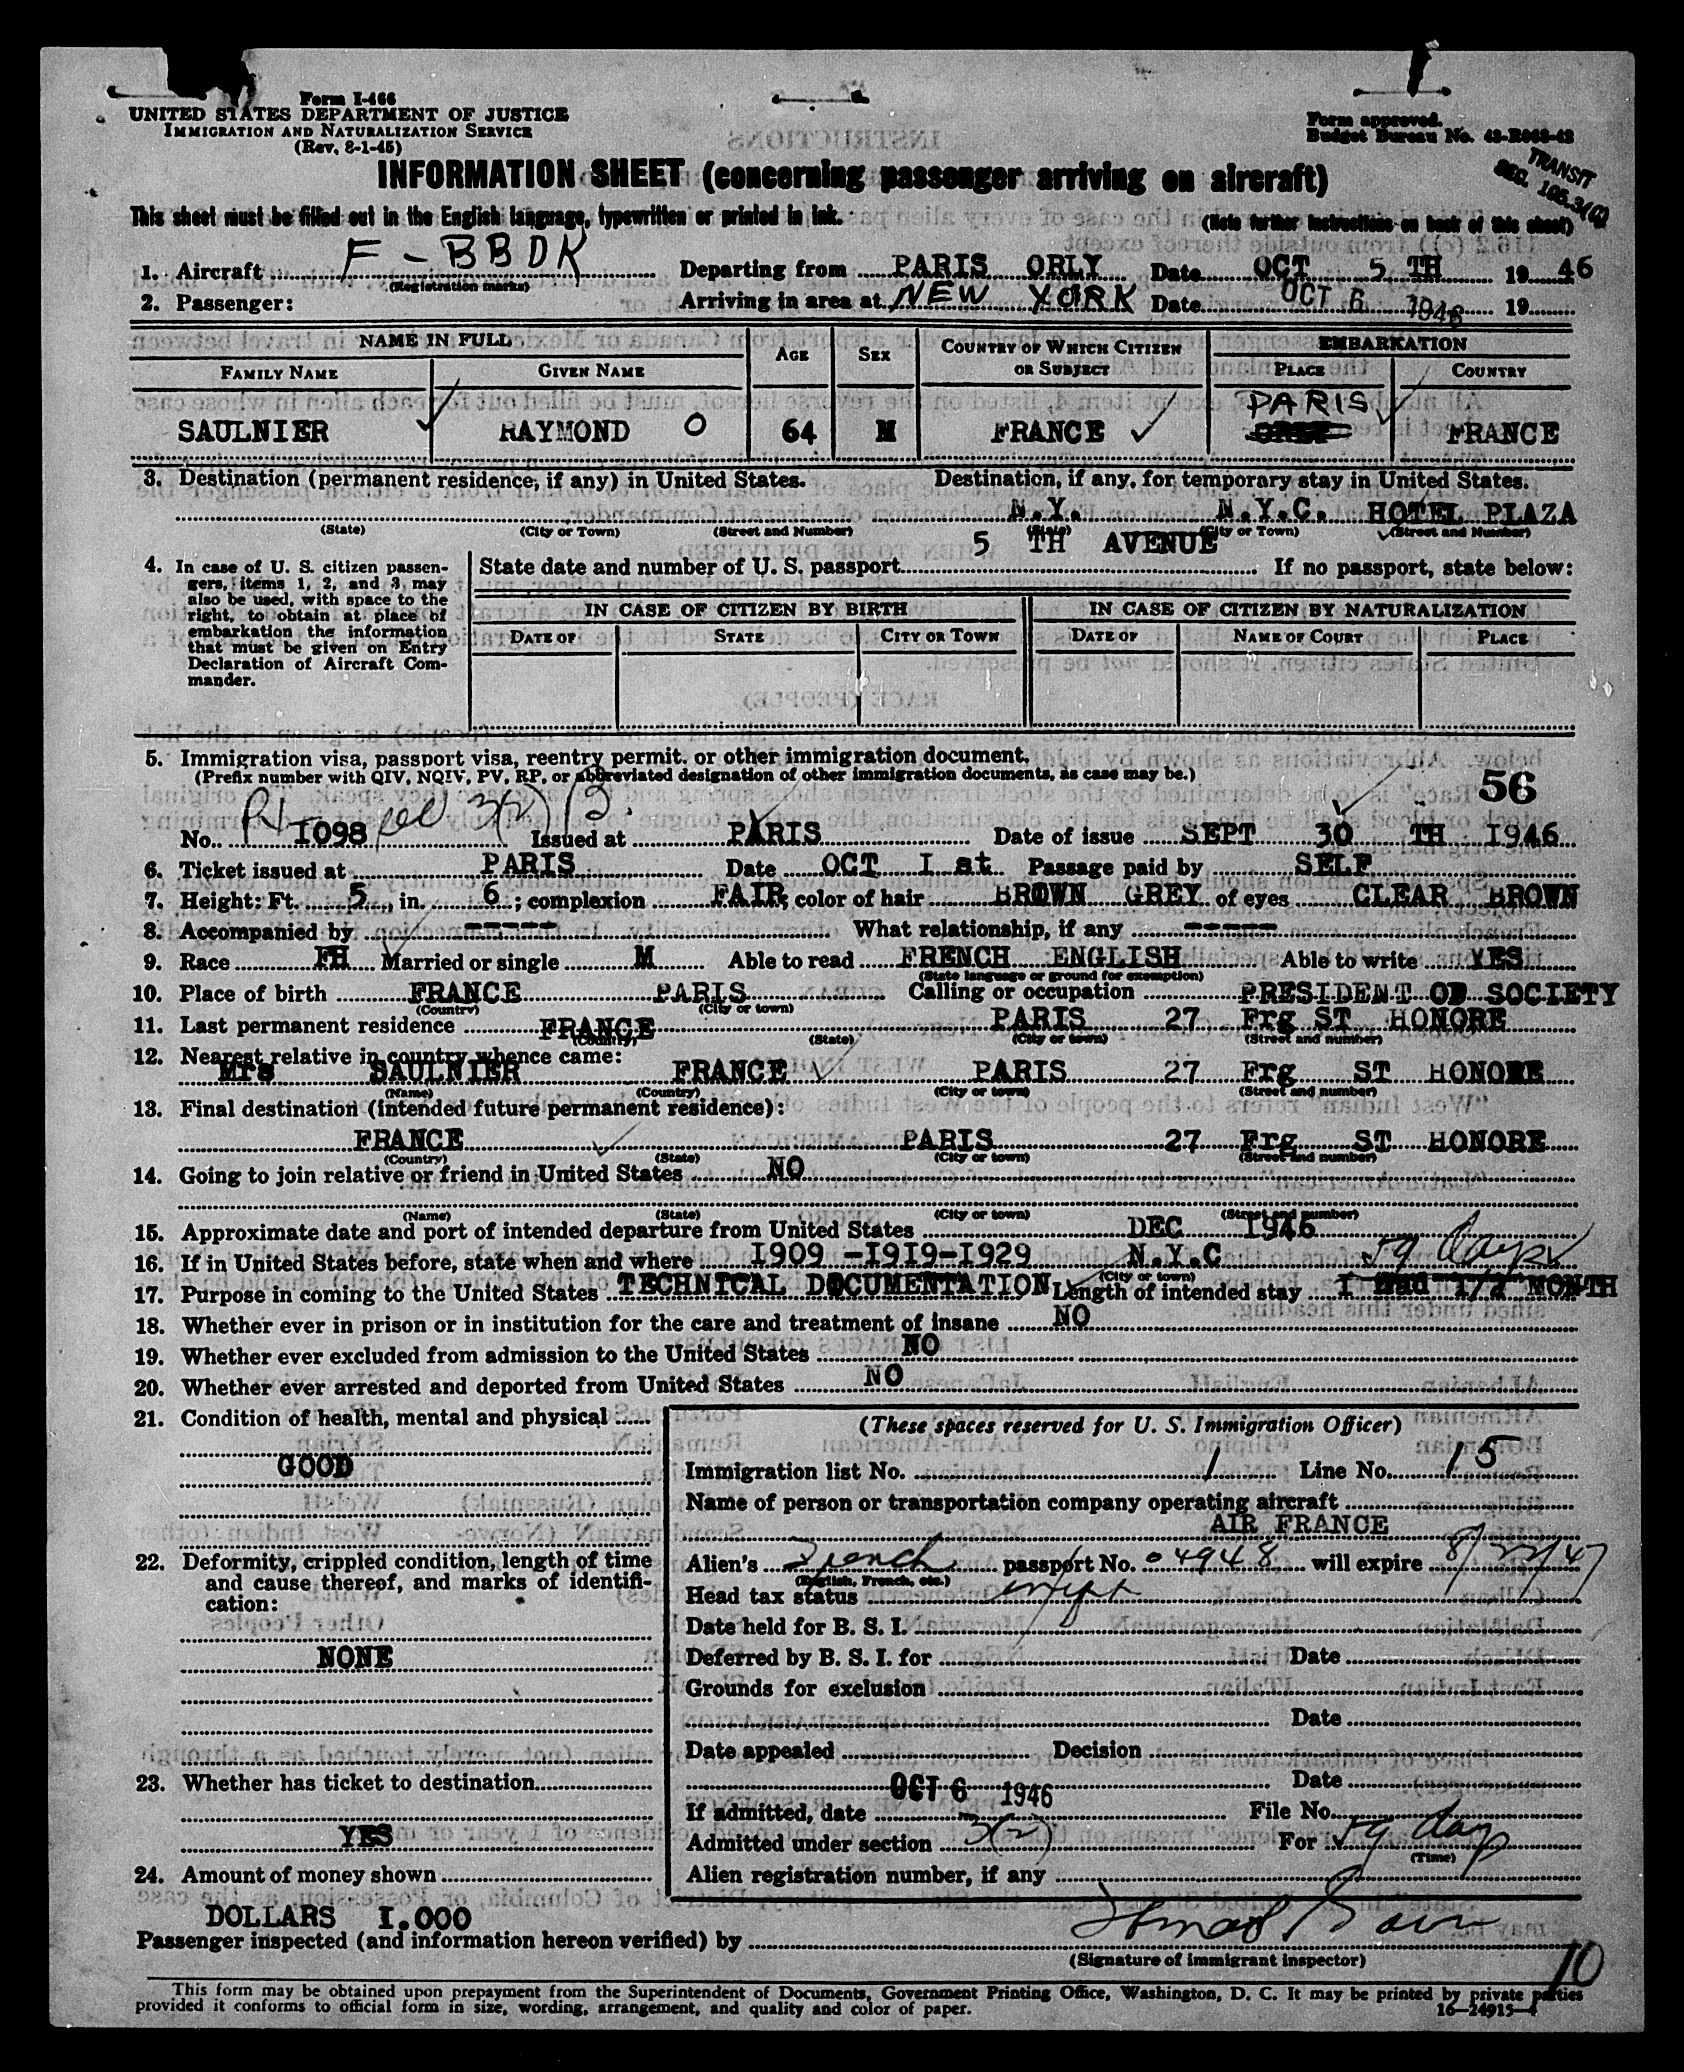 Form I-466
UNITED STATES DEPARTMENT OF JUSTICE
IMMIGRATION AND NATURALIZATION SERVICE
(Rev. 8-1-45)
Form approved.
Budget Bureau No. 43-R063-42
TRANSIT
SEC. 176.3(j)
INFORMATION SHEET (concerning passenger arriving on aircraft)
This sheet must be filled out in the English language, typewritten or printed in ink. (Note further instructions on back of this sheet)
1. Aircraft F-BBDK Departing from PARIS ORLY Date OCT 5 TH 1946
(Registration marks)
2. Passenger: Arriving in area at NEW YORK Date OCT 6 1946 19
NAME IN FULL AGE SEX COUNTRY OF WHICH CITIZEN OR SUBJECT EMBARKATION
FAMILY NAME GIVEN NAME PLACE COUNTRY
PARIS
SAULNIER RAYMOND O 64 M FRANCE FRANCE
3. Destination (permanent residence, if any) in United States. Destination, if any, for temporary stay in United States.
N.Y. N.Y.C. HOTEL PLAZA
(State) (City or Town) (Street and Number) (State) (City or Town) (Street and Number)
5 TH AVENUE
4. In case of U. S. citizen passengers, items 1, 2, and 3 may also be used, with space to the right, to obtain at place of embarkation the information that must be given on Entry Declaration of Aircraft Commander.
State date and number of U. S. passport If no passport, state below:
IN CASE OF CITIZEN BY BIRTH IN CASE OF CITIZEN BY NATURALIZATION
DATE OF STATE CITY OR TOWN DATE OF NAME OF COURT PLACE
5. Immigration visa, passport visa, reentry permit, or other immigration document.
(Prefix number with QIV, NQIV, PV, RP, or abbreviated designation of other immigration documents, as case may be.)
56
No. I098 3(2) Issued at PARIS Date of issue SEPT 30 TH I946
6. Ticket issued at PARIS Date OCT I st Passage paid by SELF
7. Height: Ft. 5, in. 6; complexion FAIR; color of hair BROWN GREY of eyes CLEAR BROWN
8. Accompanied by ----- What relationship, if any -----
9. Race FH Married or single M Able to read FRENCH ENGLISH Able to write YES
(State language or ground for exemption)
10. Place of birth FRANCE PARIS Calling or occupation PRESIDENT OF SOCIETY
(Country) (City or town)
11. Last permanent residence FRANCE PARIS 27 Frg ST HONORE
(Country) (State) (City or town) (Street and number)
12. Nearest relative in country whence came:
Mrs SAULNIER FRANCE PARIS 27 Frg ST HONORE
(Name) (Country) (City or town) (Street and number)
13. Final destination (intended future permanent residence):
FRANCE PARIS 27 Frg ST HONORE
(Country) (State) (City or town) (Street and number)
14. Going to join relative or friend in United States NO
(Name) (State) (City or town) (Street and number)
15. Approximate date and port of intended departure from United States DEC I946
16. If in United States before, state when and where I909 -I9I9-I929 N.Y.C 59 days
(City or town)
17. Purpose in coming to the United States TECHNICAL DOCUMENTATION Length of intended stay I and I/2 MONTH
18. Whether ever in prison or in institution for the care and treatment of insane NO
19. Whether ever excluded from admission to the United States NO
20. Whether ever arrested and deported from United States NO
21. Condition of health, mental and physical
GOOD
22. Deformity, crippled condition, length of time and cause thereof, and marks of identification:
NONE
23. Whether has ticket to destination
YES
24. Amount of money shown
DOLLARS I.000
(These spaces reserved for U. S. Immigration Officer)
Immigration list No. 1 Line No. 15
Name of person or transportation company operating aircraft
AIR FRANCE
Alien's French passport No. 04948 will expire 8/22/47
(English, French, etc.)
Head tax status
Date held for B. S. I.
Deferred by B. S. I. for Date
Grounds for exclusion
Date
Date appealed Decision
Date
If admitted, date OCT 6 1946 File No.
Admitted under section 3(2) For 59 days
(Time)
Alien registration number, if any
Passenger inspected (and information hereon verified) by
(Signature of immigrant inspector)
10
This form may be obtained upon prepayment from the Superintendent of Documents, Government Printing Office, Washington, D. C. It may be printed by private parties
provided it conforms to official form in size, wording, arrangement, and quality and color of paper. 16—24915-1